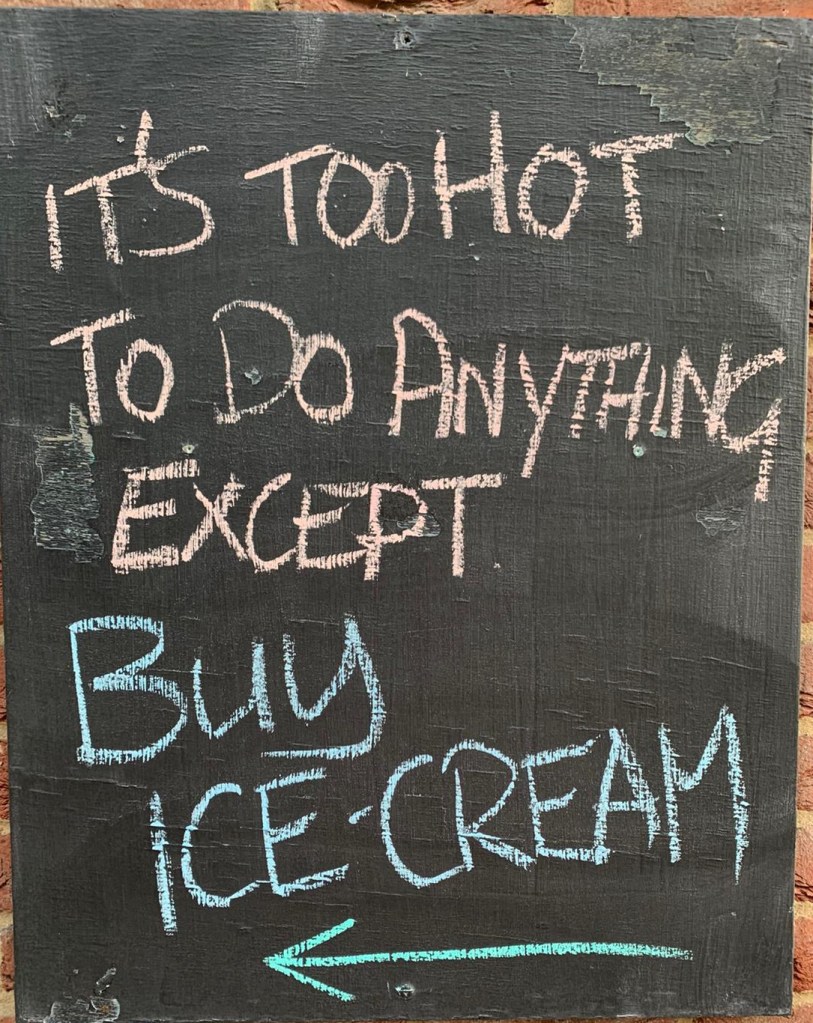 IT'S TOO HOT
TO DO ANYTHING
EXCEPT
BUY
ICE-CREAM